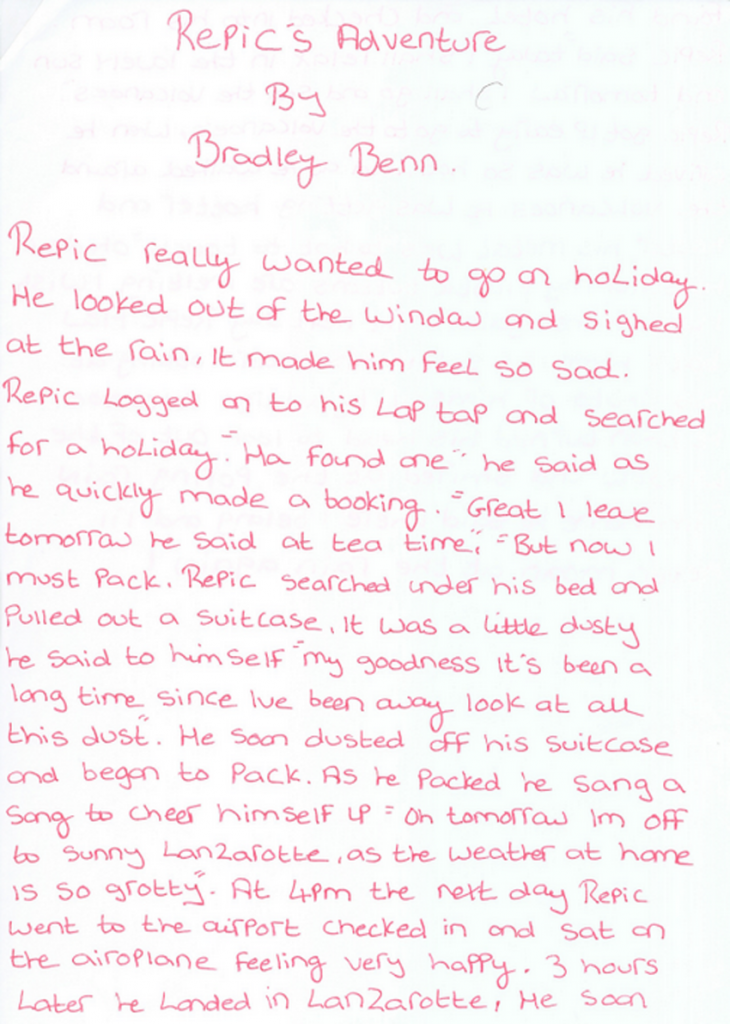 Repic's Adventure
By
Bradley Benn
Repic really wanted to go on holiday.
He looked out of the window and sighed
at the rain, it made him feel so sad.
Repic logged on to his Lap tap and searched
for a holiday. "Ha found one" he said as
he quickly made a booking "Great I leave
tomorrow he said at tea time", "But now I
must Pack. Repic searched under his bed and
Pulled out a suitcase, It was a little dusty
he said to himself "my goodness it's been a
long time since Ive been away look at all
this dust". He soon dusted off his suitcase
and began to Pack. As he Packed he sang a
Song to cheer himself up "Oh tomorrow Im off
to sunny Lanzarotte, as the weather at home
is so grotty". At 4pm the next day Repic
went to the airport checked in and sat on
the airoplane feeling very happy. 3 hours
Later he Landed in Lanzarotte, He soon